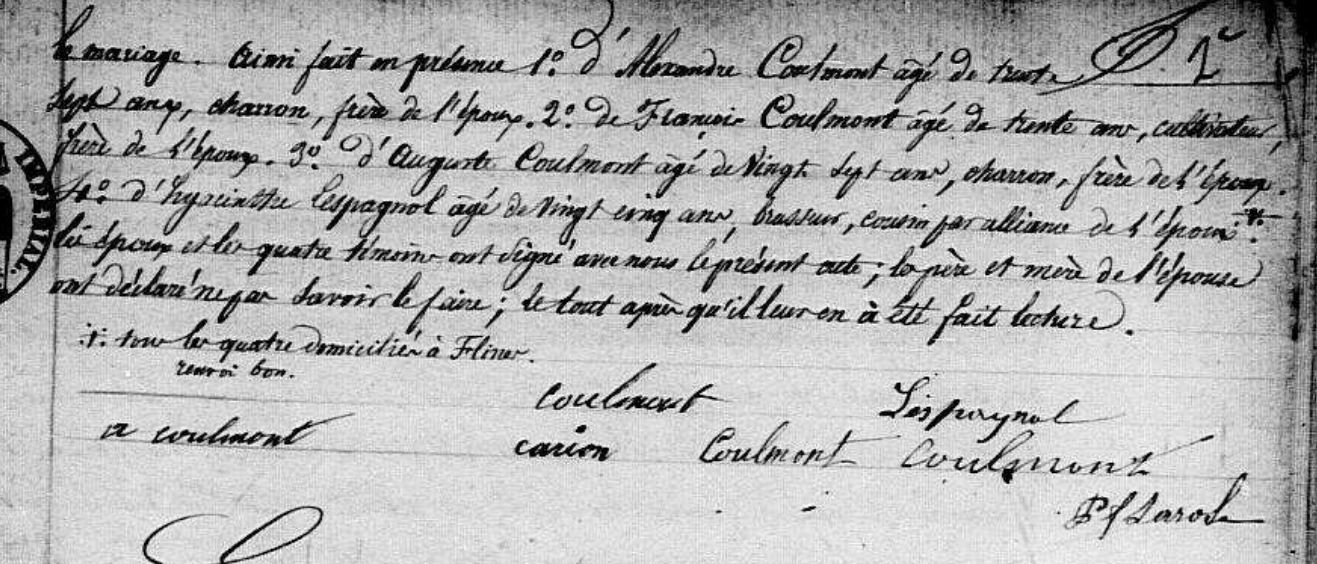 le mariage. Ainsi fait en présence 1º d'Alexandre Coulmont âgé de trente
sept ans, charron, frère de l'époux. 2º de François Coulmont âgé de trente ans, cultivateur,
frère de l'époux. 3º d'Auguste Coulmont âgé de Vingt sept ans, charron, frère de l'époux.
4º d'hyacinthe Lespagnol âgé de Vingt cinq ans, brasseur, cousin par alliance de l'époux
Les époux et les quatre témoins ont Signé avec nous le présent acte; les père et mère de l'épouse
ont déclaré ne pas Savoir le faire; le tout après qu'il leur en à été fait lecture.
tous les quatre domiciliés à Flines.
renvoi bon.
IMPÉRIAL.
Coulmont Lespagnol
a coulmont carion Coulmont Coulmont